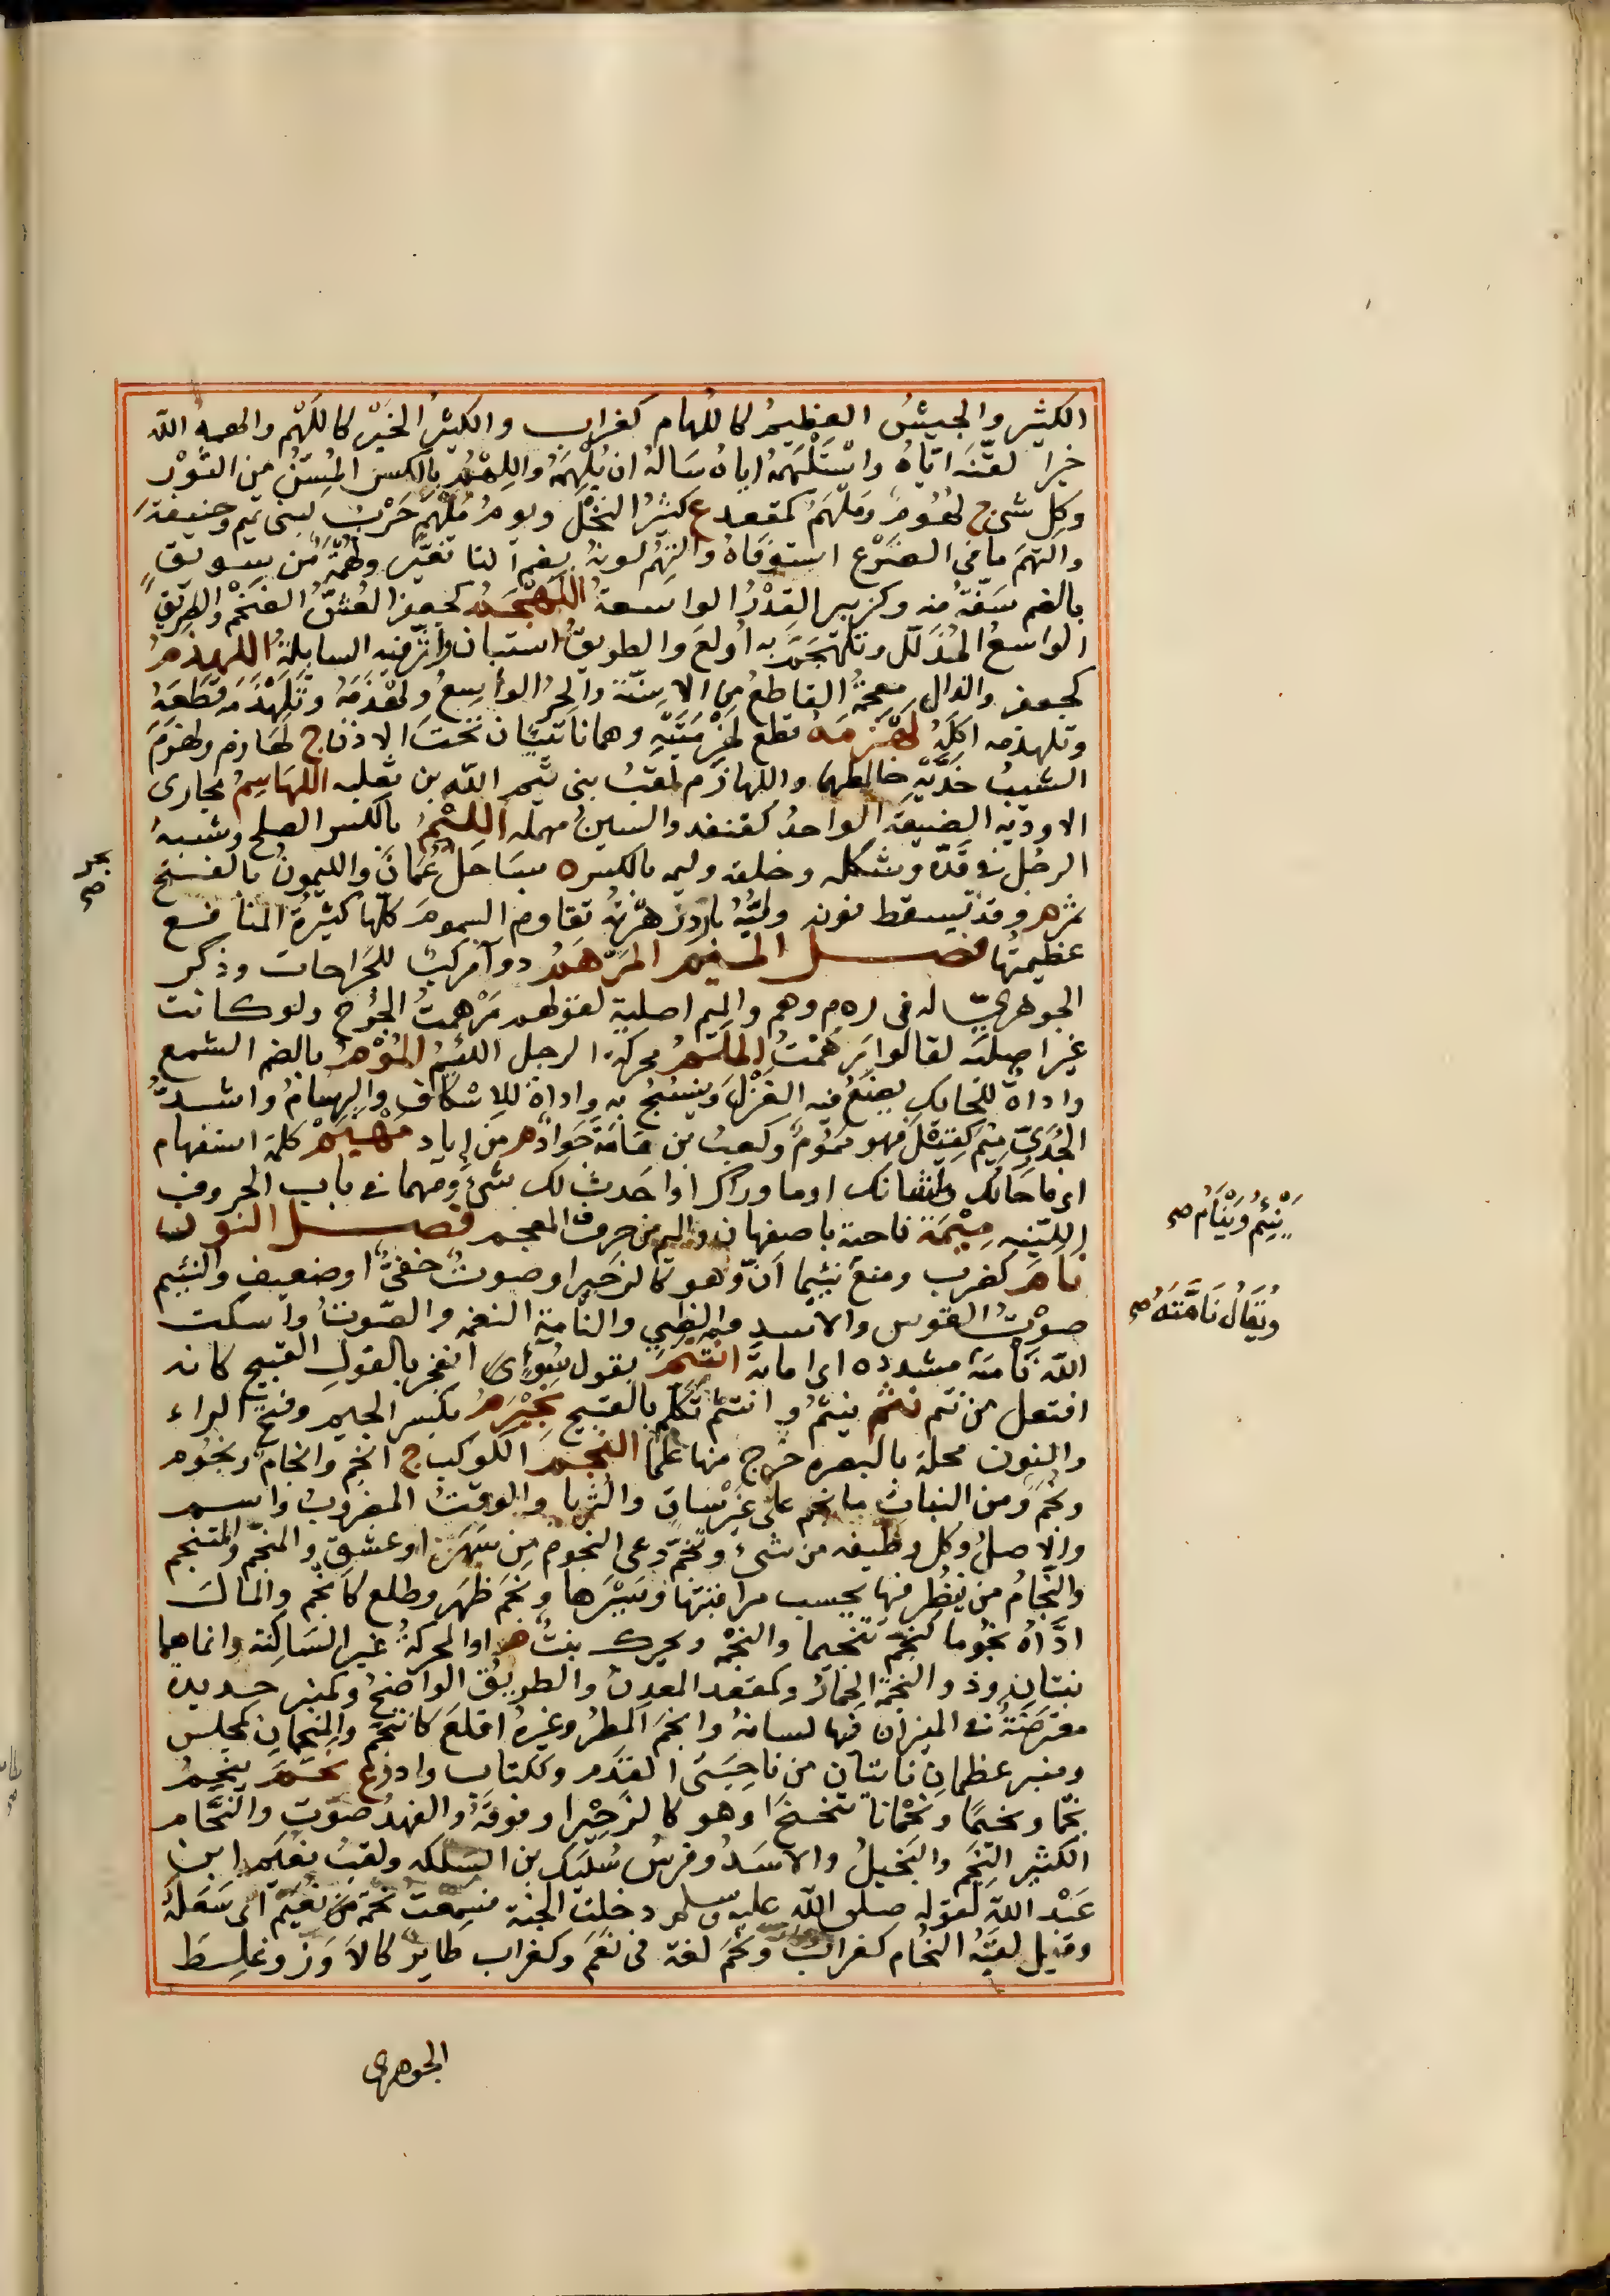 الكثير والجيشُ العظيمُ كاللُهام كغراب والكثيرُ الخَيْر كاللَّهْم والهمه الله
خيرا لقّنَه ايّاهُ واسْتَلْهَمهُ اياهُ سَالهُ ان يُلْهِمَهُ واللِهْمُ بالكسر المُسِنُّ من الثَوْر
وكل شئ ج لُهُومٌ ومَلْهَمٌ كمقعد ع كثيرُ النخْل ويومُ مُلْهَم حَرْبٌ لبنى تميم وحنيفةَ
والتَهَمَ مافى الضَرْع استوفاهُ والتُهِمَ لونهُ بضم التا تغيّر ولُهْمَةٌ من سويق
بالضم سَفّةٌ منه وكزبير القِدْرُ الواسعةُ اللَهْجَمُ كجعفر العُسُّ الضَخْم والطريق
الواسعُ المُذَلّل وتَلَهْجَمَ به أولعَ والطريقُ استبان واثّر فيه السابلةُ اللهذمُ
كجعفر والذال معجمةٌ القاطعُ من الاسِنّة والحِرُ الواسِعُ ولَهْذَمَهُ وتَلَهْذَمَه قَطَعَهُ
وتلهذمه اكَلَهُ لَهْزَمَهُ قطع لِهْزِمَتَيْهِ وهما ناتئان تحتَ الاذنين ج لَهازم ولهزَم
الشيبُ خدَّيْهِ خالطهما واللهازم لقبُ بنى تيم الله بن ثعلبه اللهَاسِمُ مجارى
الاوديه الضيقة الواحدُ كقنفد والسينُ مهمله اللِيْمُ بالكسر الصلح وشبهُ
الرجُل فى قدّه وشكله وخلقه وليه بالكسر ه بساحل عُمانَ والليمونُ بالفتح
ثمر م وقد يسقط نونه
عظيمتُها فصل الميم المَرْهَمُ دوآ مركبٌ للجَراحات وذكر
الجوهرىّ له فى ر ه م وهم والميم اصلية لقولهم مَرْهمتُ الجُرح ولو كانت
غير اصلية لقالوا رَهَّمْتُ المَلَمُ محركة الرجل اللئيمُ المُوْمُ بالضم الشمع
واداةٌ للحايك يضَعُ فيه الغَزْلَ وينسُجُ به واداةٌ للاِسْكاف والبِرسامُ واشدُّ
الجُدَرِىّ مِيْمَ كقِيْلَ فهو مَمُومٌ وكعبُ بن مَامَةَ جَوادٌ م من اياد مَهْيَمْ كلمة استفهام
اى ماحالك وماشانك اوما ورآك او احَدثَ لك شئ ومهما فى باب الحروف
اللّيّنه مِيْمَة ناحية باصفهان والميم من حروف المعجم فصل النون
نَامَ كضرب ومنع نئيما أنّ وهو كالزحير او صوتٌ خفىٌّ او ضعيف والنئيم
صوْتُ القوس والاسدِ والظبى والنأمة النغمه والصَوتُ واسكت
الله نَامّتهُ مشدده اى اماته انتتم بقول سُوْءٍ اى انفجر بالقولِ القبيح كانه
افتعل من نتم نثم ينثُم وانتثم تكلّم بالقبيح نجيْرَمُ بكسر الجيم وفتح الراء
والنون محلة بالبصره خرج منها علما النجم الكوكب ج انجم وانجام ونجُوم
ونُجُم ومن النبات ما نجم على غير ساق والثريا والوقتُ المضروبُ واسم
والاصلُ وكل وظيفه من شئ وتنجّم رعى النجوم من سَهَر او عشق والمنجّم والمتنجم
والنجّامُ من ينظُر فيها بحسب مواقيتها وسَيْرها ونجَم ظهَر وطلع كانجم والمالَ
ادّاهُ نجُوما كنجّم تنجيما والنجْمه ويحرك نبتٌ م او المحركةُ غير السَاكنة وانما هما
نبتان وذو النجمة الحِمارُ وكمقعد المعدن والطريقُ الواضح وكمنبر حديدة
معترضةٌ فى الميزان فيها لسانهُ وانجَم المطرُ وغيرهُ اقلعَ كانتجَم والمنجمان كمجلس
ومنبر عظمان ناتئان من ناحِيَتَى القدَم وككتاب واد او ع نحَم ينحِمُ
نحْما ونحيمًا ونحْماناً تنحنحَ او هو كالزحِيْر او فوقهُ والفهدُ صوّت والنحّام
الكثير النَحِم والبَخيلُ والاسَدُ وفرسُ سُليْك بن السَلكه ولقبُ نعَيم ابن
عَبْد الله لقوله صلى الله عليه وسلم دخلتُ الجنة فسمعتُ نحْمة من نعَيم اى سَعلة
وقيل لقبُه النُحَام كغراب ونَحَم لغة فى نعَم وكغراب طاير كالاوَز وغلط

الجوهرى
يَنْئِمُ وَيَنْأَمُ صح
وَيُقَالُ نَامَّتَهُ صح